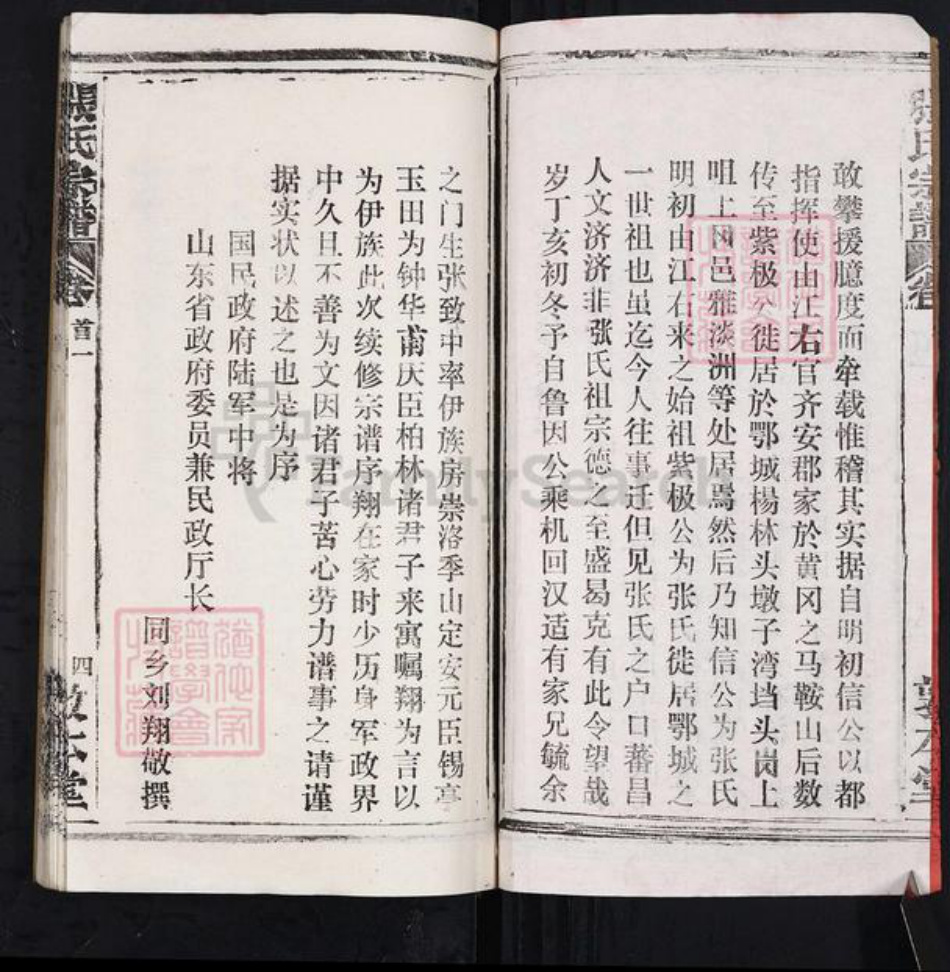 敢攀援臆度而牵载惟稽其实据自明初信公以都
指挥使由江右官齐安郡家於黄冈之马鞍山后数
传至紫极公徙居於鄂城楊林头墩子湾垱头岗上
咀上风邑雅淡洲等处居焉然后乃知信公为张氏
明初由江右来之始祖紫极公为张氏徙居鄂城之
一世祖也虽迄今人往事迁但见张氏之户口蕃昌
人文济济非张氏祖宗德之至盛曷克有此令望哉
岁丁亥初冬予自鲁因公乘机回汉适有家兄毓余
張氏宗譜
之门生张致中率伊族房崇洛季山定安元臣锡亭
玉田为钟华甫庆臣柏林诸君子来寓嘱翔为言以
为伊族此次续修宗谱序翔在家时少历身军政界
中久且不善为文因诸君子苦心劳力谱事之请谨
据实状以述之也是为序
国民政府陆军中将
山东省政府委员兼民政厅长
同乡刘翔敬撰
張氏宗譜 卷首一 四
FamilySearch